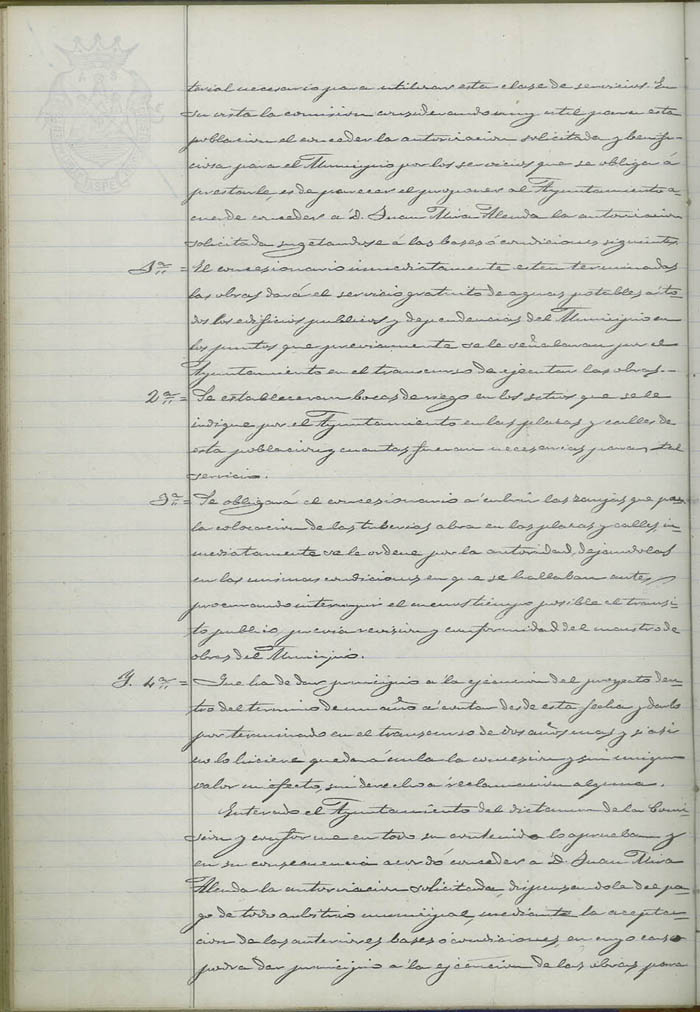 terial necesario para utilizar esta clase de servicios. En
su vista la comision considerando muy util para esta
poblacion el conceder la autorizacion solicitada y benefi-
ciosa para el Municipio por los servicios que se obliga á
prestarle, es de parecer el proponer al Ayuntamiento a-
cuerde conceder a D. Juan Mira Alenda la autorizacion
solicitada sugetandose á las bases ó condiciones siguientes.
1ª = El concesionario inmediatamente esten terminadas
las obras dará el servicio gratuito de aguas potables á to-
dos los edificios publicos y dependencias del Municipio en
los puntos que previamente se le señalaran por el
Ayuntamiento en el transcurso de ejecutar las obras. -
2ª = Se estableceran bocas de riego en los sitios que se le
indique por el Ayuntamiento en las plazas y calles de
esta poblacion y cuantas fueran necesarias para tal
servicio.
3ª = Se obligará el concesionario a cubrir las zanjas que para
la colocacion de las tuberias abra en las plazas y calles, in-
mediatamente se le ordene por la autoridad, dejandolas
en las mismas condiciones en que se hallaban antes,
procurando interrumpir el menos tiempo posible el transi-
to publico, previa revision y conformidad del maestro de
obras del Municipio.
Y. 4ª = Que ha de dar principio a la ejecucion del proyecto den-
tro del termino de un año a contar desde esta fecha y darlo
por terminado en el transcurso de dos años mas, y si asi
no lo hiciere quedará nula la concesion y sin ningun
valor ni efecto, sin derecho a reclamacion alguna.
Enterado el Ayuntamiento del dictamen de la Comi-
sion y conforme en todo su contenido lo aprueban y
en su consecuencia acordó conceder a D. Juan Mira
Alenda la autorizacion solicitada, dispensandole del pa-
go de todo arbitrio municipal, mediante la acepta-
cion de las anteriores bases ó condiciones, en cuyo caso
podra dar principio a la ejecucion de las obras para